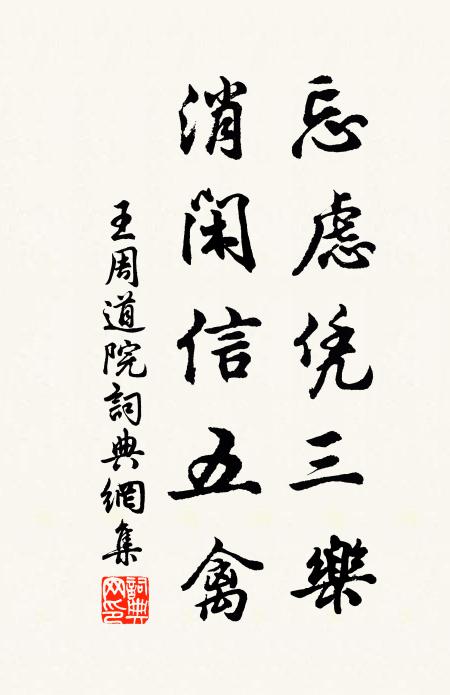 忘慮凭三樂
消閑信五禽
王周道院詞典網集
詞典網印